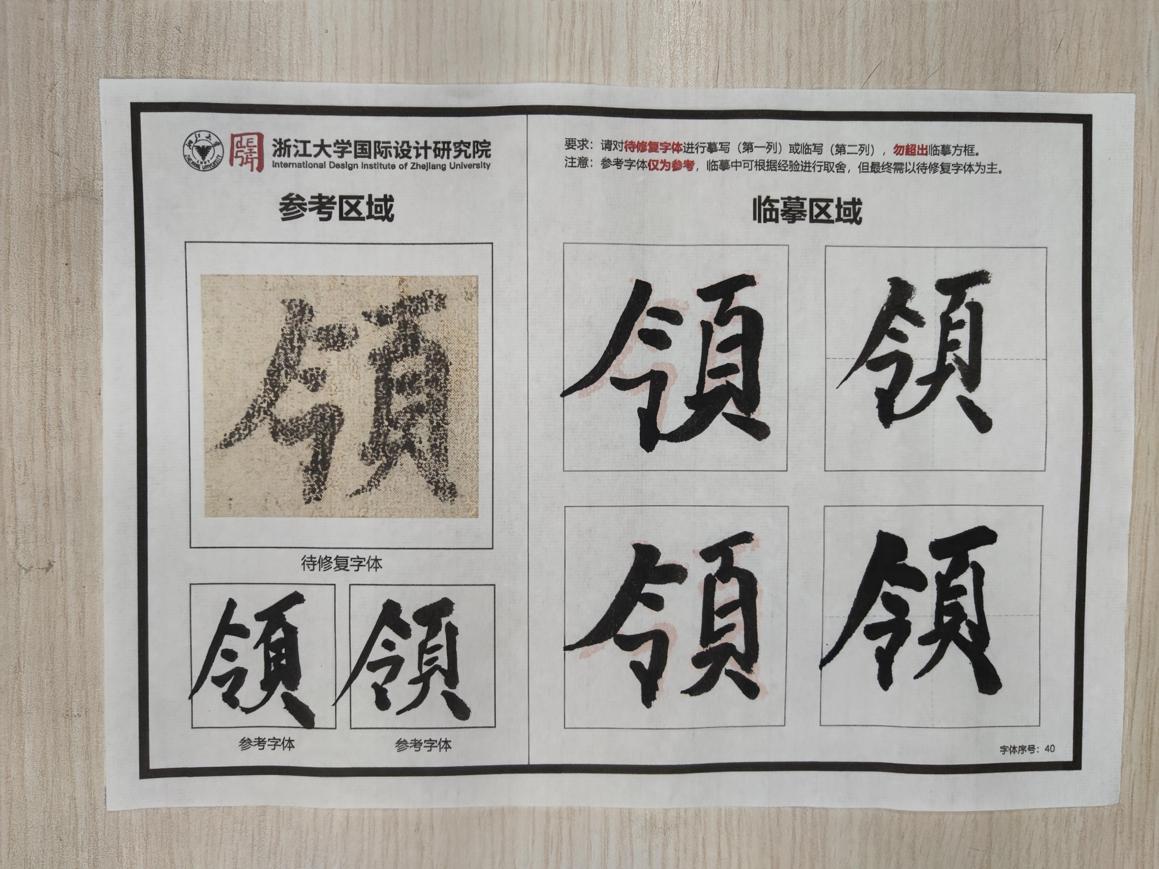 浙江大学国际设计研究院
International Design Institute of Zhejiang University
参考区域
領
待修复字体
領 領
参考字体 参考字体
要求：请对待修复字体进行摹写（第一列）或临写（第二列），勿超出临摹方框。
注意：参考字体仅为参考，临摹中可根据经验进行取舍，但最终需以待修复字体为主。
临摹区域
領 領
領 領
字体序号：40